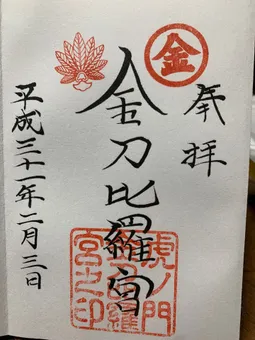 奉拝
金
金刀比羅宮
虎ノ門
金刀比羅
宮之印
平成三十一年二月三日